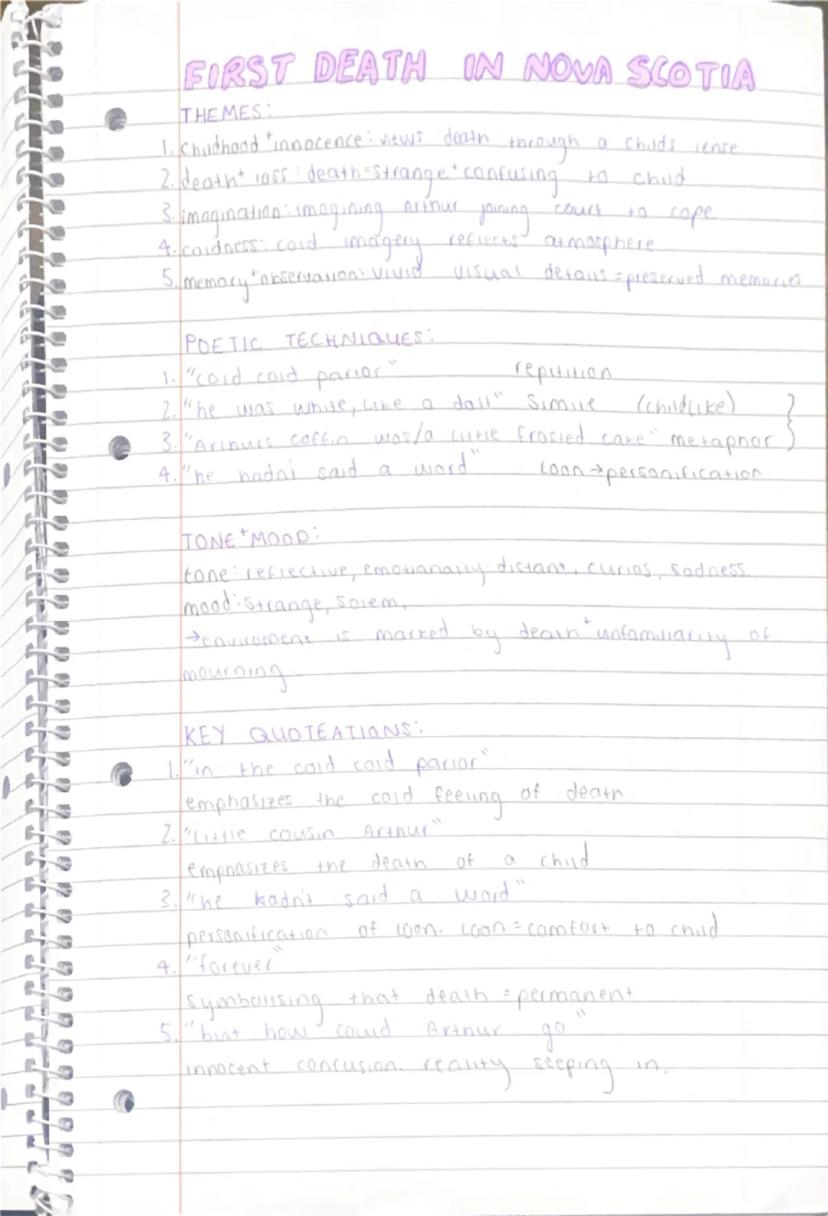 FIRST DEATH IN NOVA SCOTIA
THEMES:
1. Childhood + innocence: views death through a childs lense
2. death + loss: death = strange + confusing to child
3. imagination: imagining arthur joining court to cope
4. coldness: cold imagery reflects atmosphere
5. memory + observation: vivid visual details = preserved memories
POETIC TECHNIQUES:
1. "cold cold parlor" repitition
2. "he was white, like a doll" simile (childlike) }
3. "Arthurs coffin was/a little frosted cake" metaphor }
4. "he hadn't said a word" loon → personification
TONE + MOOD:
tone: reflective, emotionally distant, curios, sadness
mood: strange, solem,
→ enviroment is marked by death + unfamiliarity of
mourning.
KEY QUOTEATIONS:
1. "in the cold cold parlor"
emphasizes the cold feeling of death
2. "little cousin Arthur"
emphasizes the death of a child
3. "he hadn't said a word"
personification of loon. loon = comfort to child
4. "forever"
symbolising that death = permanent
5. "but how could Arthur go"
innocent confusion. reality seeping in.